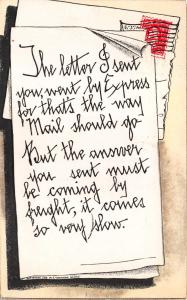 The letter I sent
you, went by Express
for that's the way
Mail should go
But the answer
you sent must
be coming by
freight, it comes
so very slow.